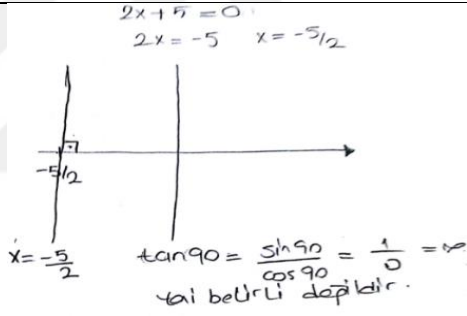 2x+5=0
2x=-5 x=-5/2
-5/2
x=-5/2 tan90 = sin90/cos90 = 1/0 = ∞
yai belirli değildir.